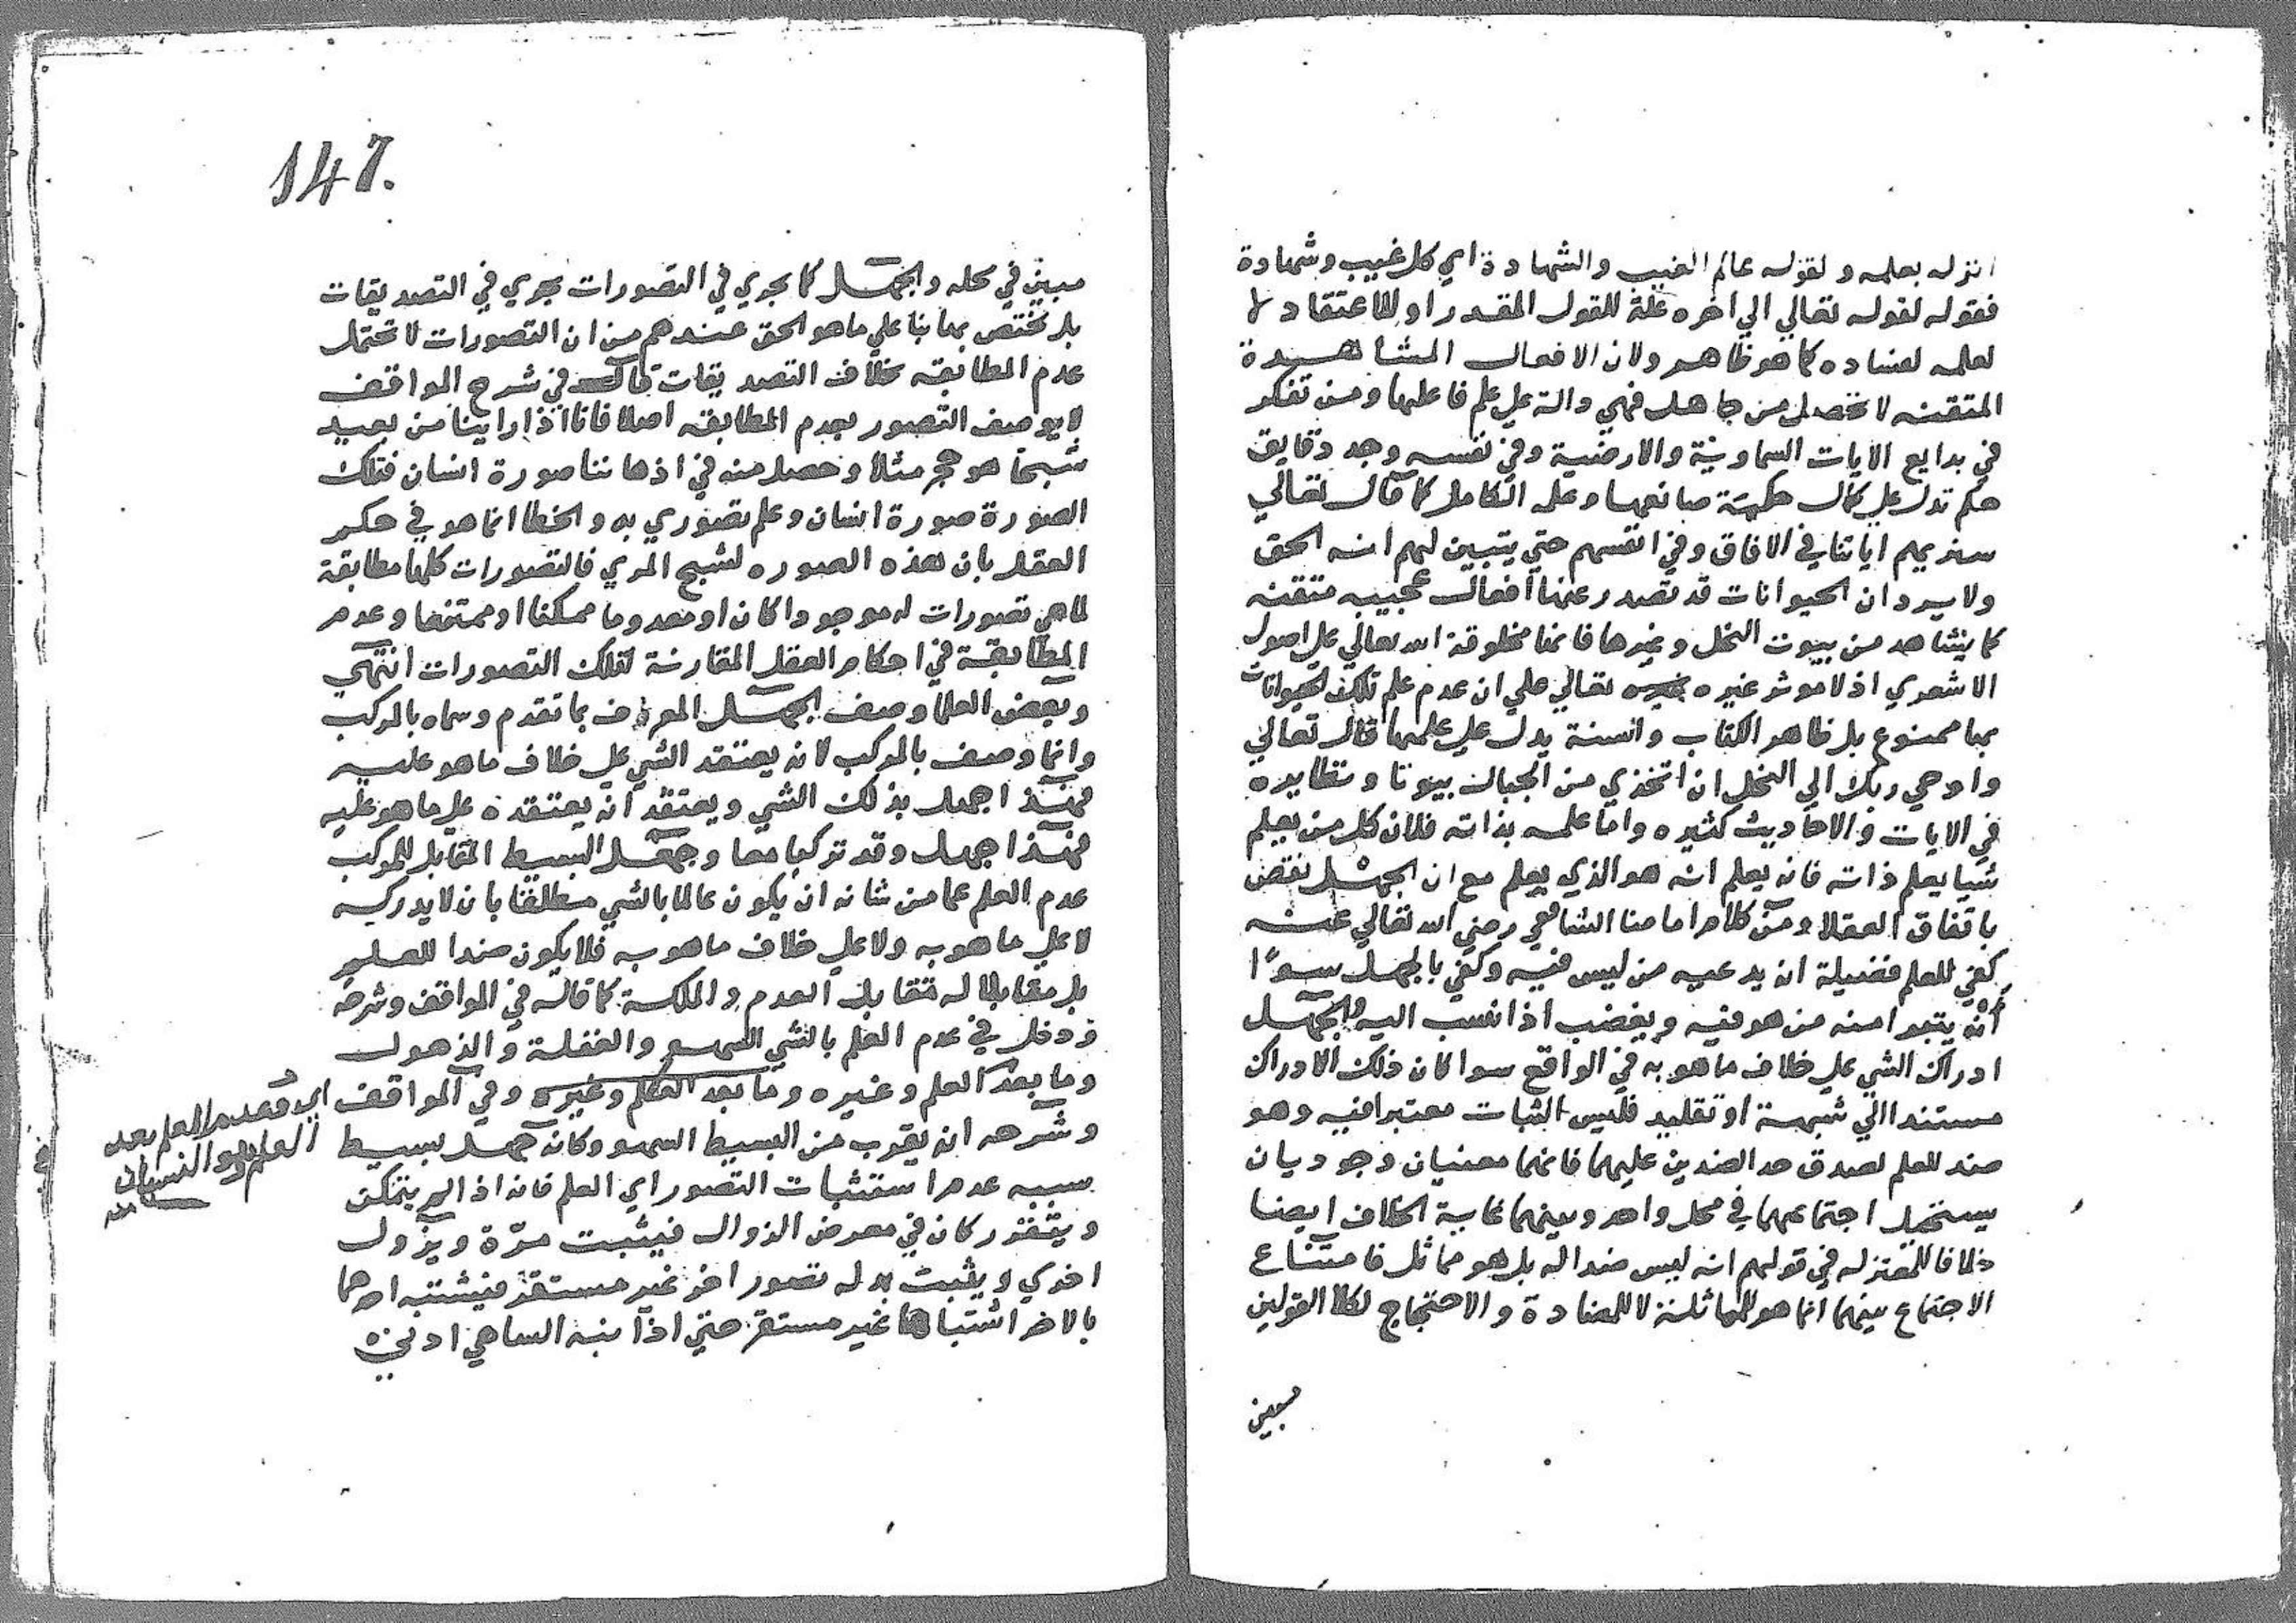 انزله بعلمه ولقوله عالم الغيب والشهادة اي كل غيب وشهادة
فقوله لقوله تعالي الي اخره علة للقول المقدر او للاعتقاد لا
لعلمه لفساده كما هو ظاهر ولان الافعال المشاهدة
المتقنه لا تحصل من جاهل فهي دالة علي علم فاعلها ومن تفكر
في بدايع الايات السماوية والارضية وفي نفسه وجد دقايق
حكم تدل علي كمال حكمة صانعها وعلمه الكامل كما قال تعالي
سنريهم اياتنا في الافاق وفي انفسهم حتي يتبين لهم انه الحق
ولا يرد ان الحيوانات قد تصدر عنها افعال عجيبه متقنه
كما يشاهد من بيوت النحل وغيرها فانها مخلوقة الله تعالي علي اصول
الاشعري اذ لا موثر غيره تعالي علي ان عدم علم تلك الحيوانات
بها ممنوع بل ظاهر الكتاب والسنة يدل علي علمها قال تعالي
واوحي ربك الي النحل ان اتخذي من الجبال بيوتا ونظايره
في الايات والاحاديث كثيره واما علمه بذاته فلان كل من يعلم
شيا يعلم ذاته فانه يعلم انه هو الذي يعلم مع ان الجهل نقص
باتفاق العقلا ومن كلام امامنا الشافعي رضي الله تعالي عنه
كفي للعلم فضيلة ان يدعيه من ليس فيه وكفي بالجهل سوءا
انه يتبرا منه من هو فيه ويغضب اذا نسب اليه والجهل
ادراك الشي علي خلاف ما هو به في الواقع سوا كان ذلك الادراك
مستندا الي شبهة او تقليد فليس الثبات معتبرا فيه وهو
ضد للعلم لصدق حد الضدين عليهما فانهما معنيان وجوديان
يستحيل اجتماعهما في محل واحد وبينهما غاية الخلاف ايضا
خلافا للمعتزله في قولهم انه ليس ضدا له بل هو مماثل فامتناع
الاجتماع بينهما انما هو للمماثلة لا للمضادة والاحتجاج لكلا القولين
مبين
147.
مبين في محله والجهل كما يجري في التصورات يجري في التصديقات
بل يختص بها بنا علي ما هو الحق عندهم من ان التصورات لا تحتمل
عدم المطابقه بخلاف التصديقات قال في شرح المواقف
لا يوصف التصور بعدم المطابقه اصلا فانا اذا راينا من بعيد
شبحا هو حجر مثلا وحصل منه في اذهاننا صورة انسان فتلك
الصورة صورة انسان وعلم تصوري به والخطا انما هو في حكم
العقل بان هذه الصوره لشبح المري فالتصورات كلها مطابقة
لما هي تصورات له موجودا كان او معدوما ممكنا او ممتنعا وعدم
المطابقة في احكام العقل المقارنة لتلك التصورات انتهي
وبعض العلما وصف الجهل المعرف بما تقدم وسماه بالمركب
وانما وصف بالمركب لانه يعتقد الشي علي خلاف ما هو عليه
فهذا جهل بذلك الشي ويعتقد انه يعتقده علي ما هو عليه
فهذا جهل وقد تركبا معا وجهل البسيط المقابل للمركب
عدم العلم عما من شانه ان يكون عالما بالشي مطلقا بان لا يدركه
لا علي ما هو به ولا علي خلاف ما هو به فلا يكون ضدا للعلم
بل مقابلا له تقابل العدم والملكة كما قاله في المواقف وشرحه
ودخل في عدم العلم بالشي السهو والغفلة والذهول
وما بعد العلم وغيره وما بعد العلم وغيره وفي المواقف
وشرحه ان يقرب من البسيط السهو وكان جهل بسيط
سببه عدم استثبات التصور اي العلم فانه اذا لم يتمكن
ويتقرر كان في معرض الزوال فيثبت مرة ويزول
اخري ويثبت بدله تصور اخر غير مستقر فيشتبه احدهما
بالاخر اشتباها غير مستقر حتي اذا نبه الساهي ادني
اي فعدم العلم بعد
العلم هو النسيان
منه